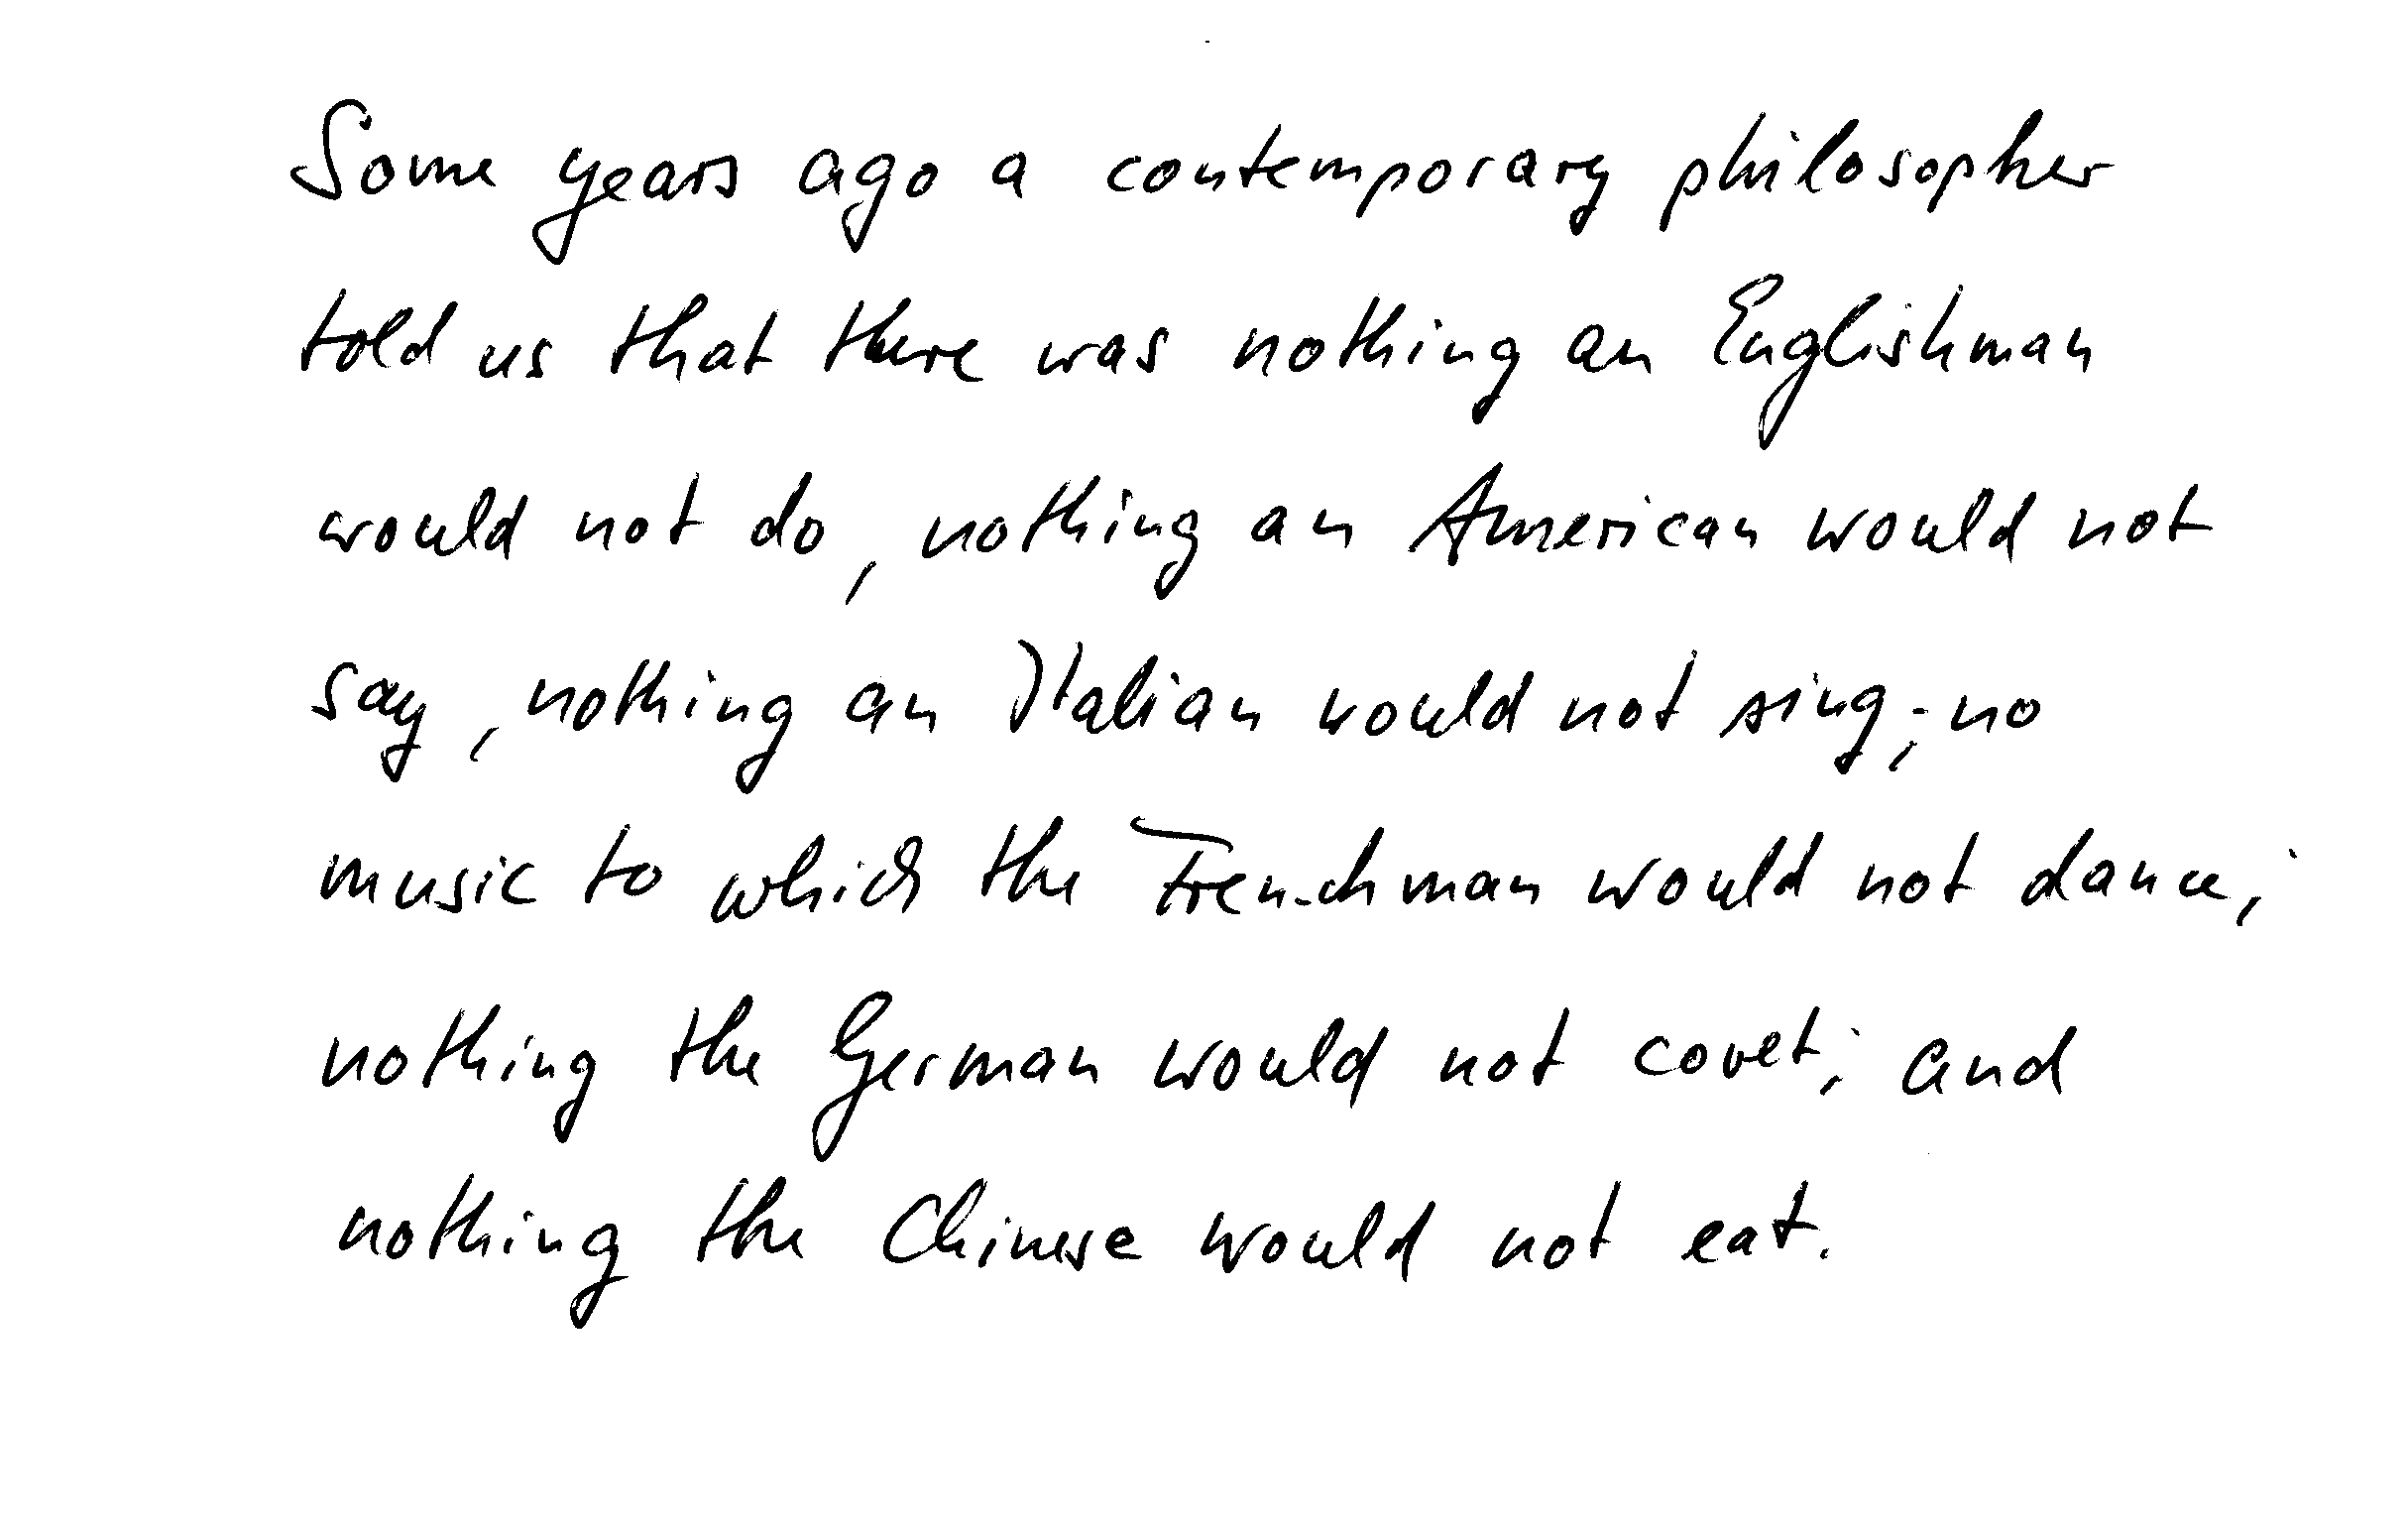 Some years ago a contemporary philosopher
told us that there was nothing an Englishman
would not do, nothing an American would not
say, nothing an Italian would not sing; no
music to which the Frenchman would not dance;
nothing the German would not covet; and
nothing the Chinese would not eat.